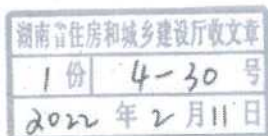 湖南省住房和城乡建设厅收文章
1份 4-30号
2022年2月11日